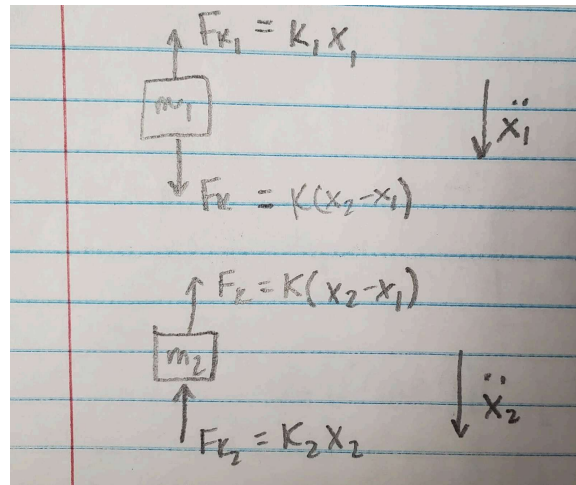 F_K₁ = K₁ x₁
m₁
ẍ₁
F_K = K(x₂-x₁)
F_K = K(x₂-x₁)
m₂
ẍ₂
F_K₂ = K₂ x₂